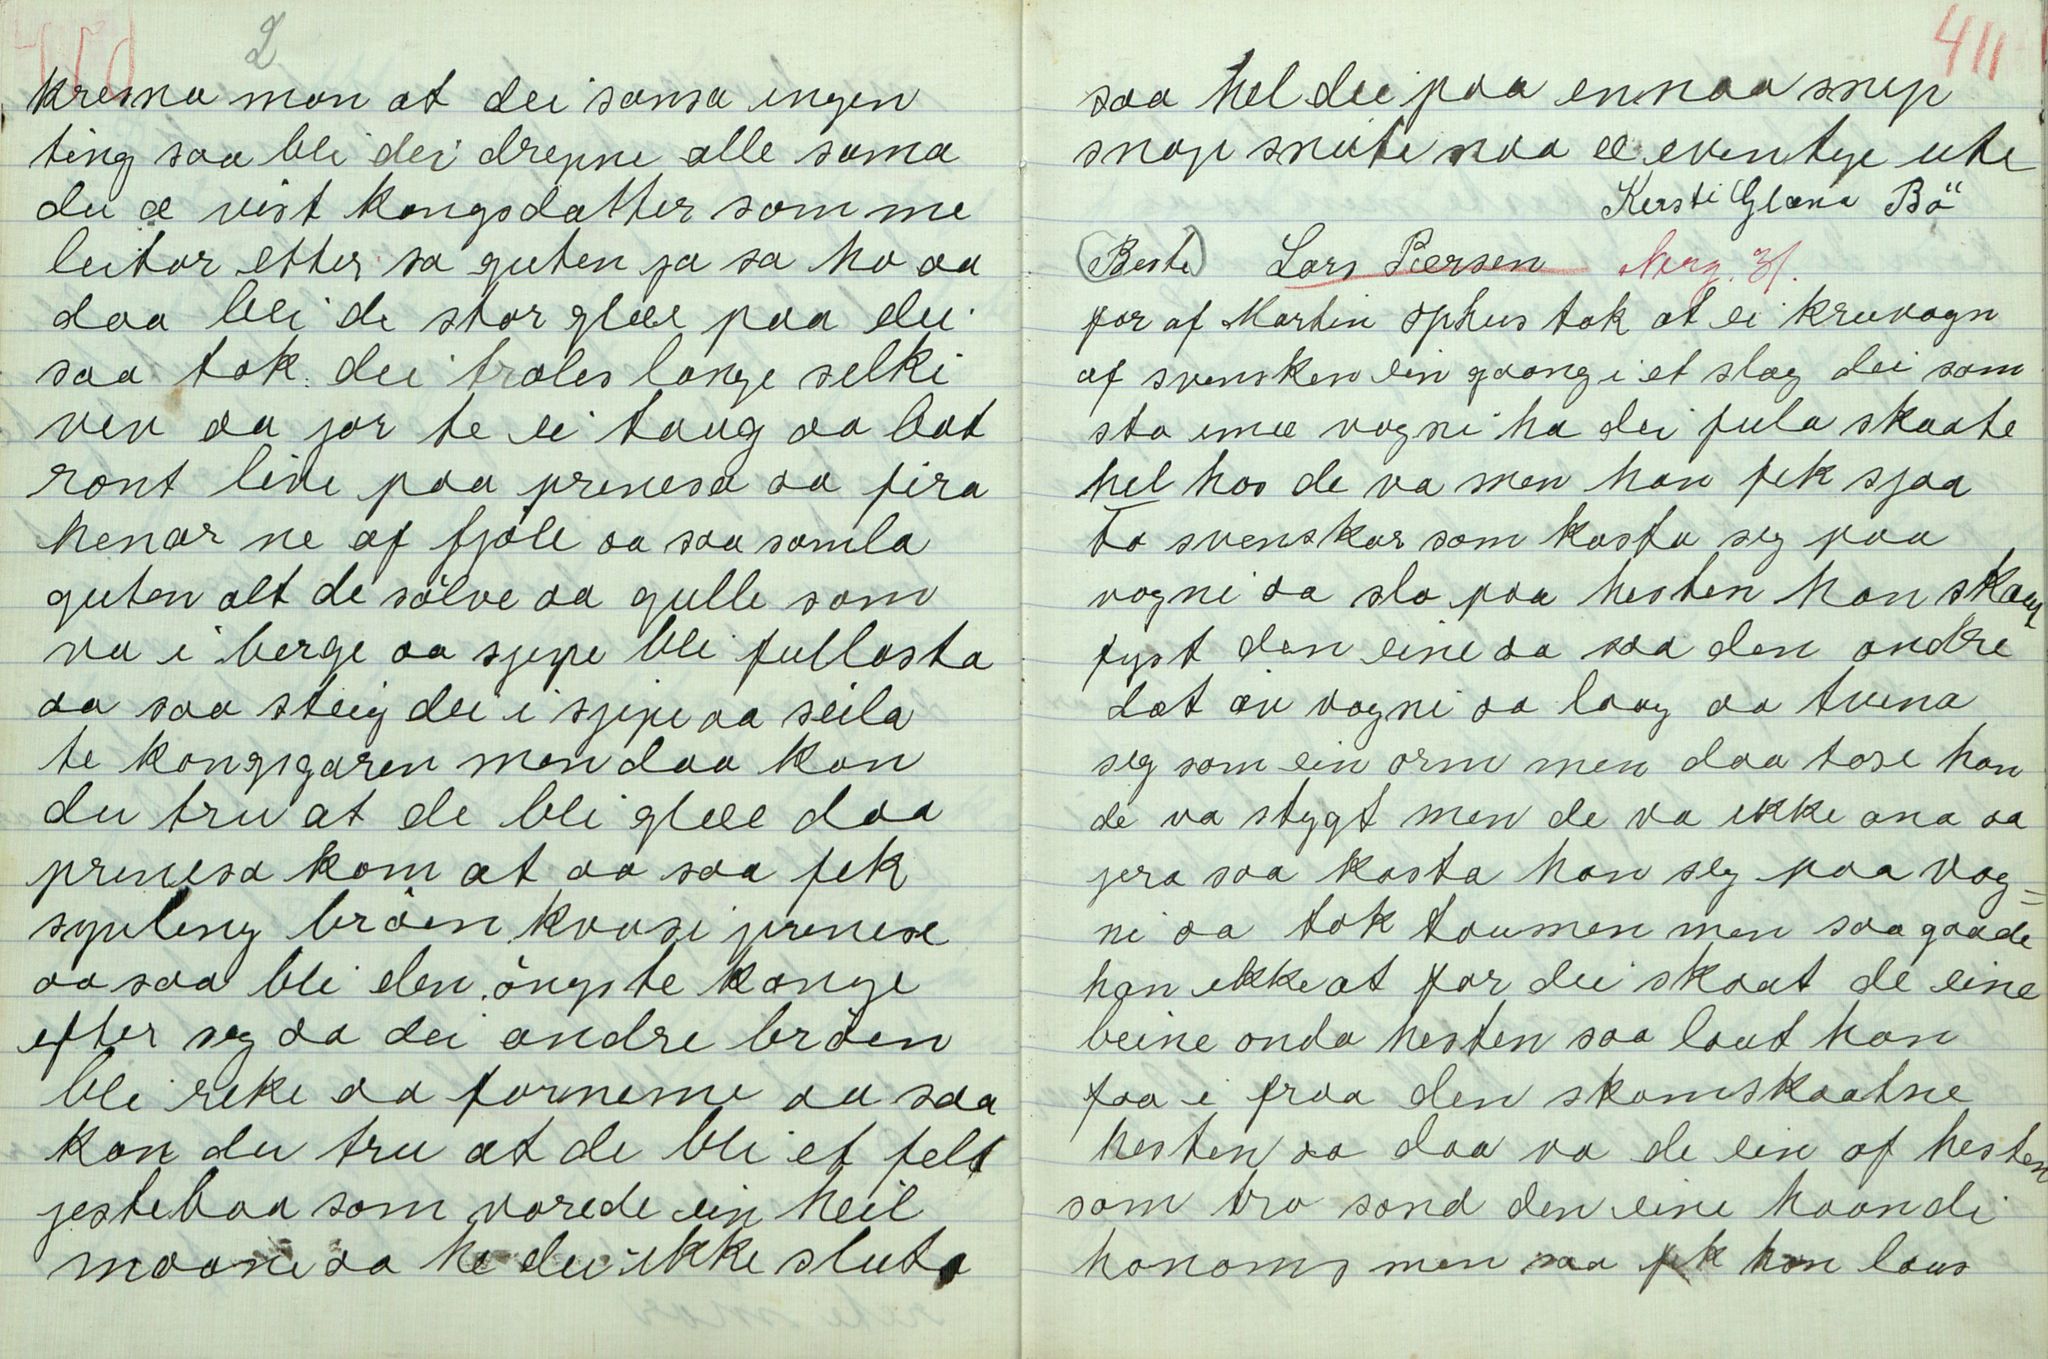 2
kresna man at dei sansa ingen
ting saa blei dei drepne alle sama
du æ vist kongsdatter som me
leitar etter sa guten ja sa ho aa
daa blei de stor glæe paa dei
saa tok dei trolets lange selki
ven aa jor te ei taug aa bat
ront live paa prinesa aa fira
henar ne af fjöle aa saa samla
guten alt de sölve aa gulle som
va i berge aa sjipe blei fullasta
aa saa steig dei i sjipe aa seila
te kongsgaren men daa kan
du tru at de blei glæe daa
prinesa kom at aa saa fek
syuling bröen kvasi prinese
aa saa blei den öngste konge
efter seg aa dei andre bröen
blei rike aa forneme aa saa
kan du tru at de blei et felt
jestebaa som varede ein heil
maane aa he dei ikke sluta
411
saa hel dei paa ennaa snip
snap snute naa æ eventye ute
Kersti Glæna Bö
(Beste) Lars Pærsen Norg. 31.
far af Martin Ophus tok at ei kruvagn
af svensken ein gaang i et slag dei som
sto imæ vagni ha dei fula skaate
hel hos de va men han fek sjaa
To svenskar som kasta seg paa
vagni aa slo paa hesten han skaut
fyst den eine aa saa den andre
dat av vagni aa laag aa tvina
seg som ein orm men daa tose han
de va stygt men de va ikke ana aa
jera saa kasta han seg paa vog=
ni aa tok taumen men saa gaade
han ikke at før dei skaat de eine
beine onda hesten saa laut han
faa i fraa den skamskaatne
hesten aa daa va de ein af hesten
som tro sond den eine haandi
hanoms men saa fek han laus